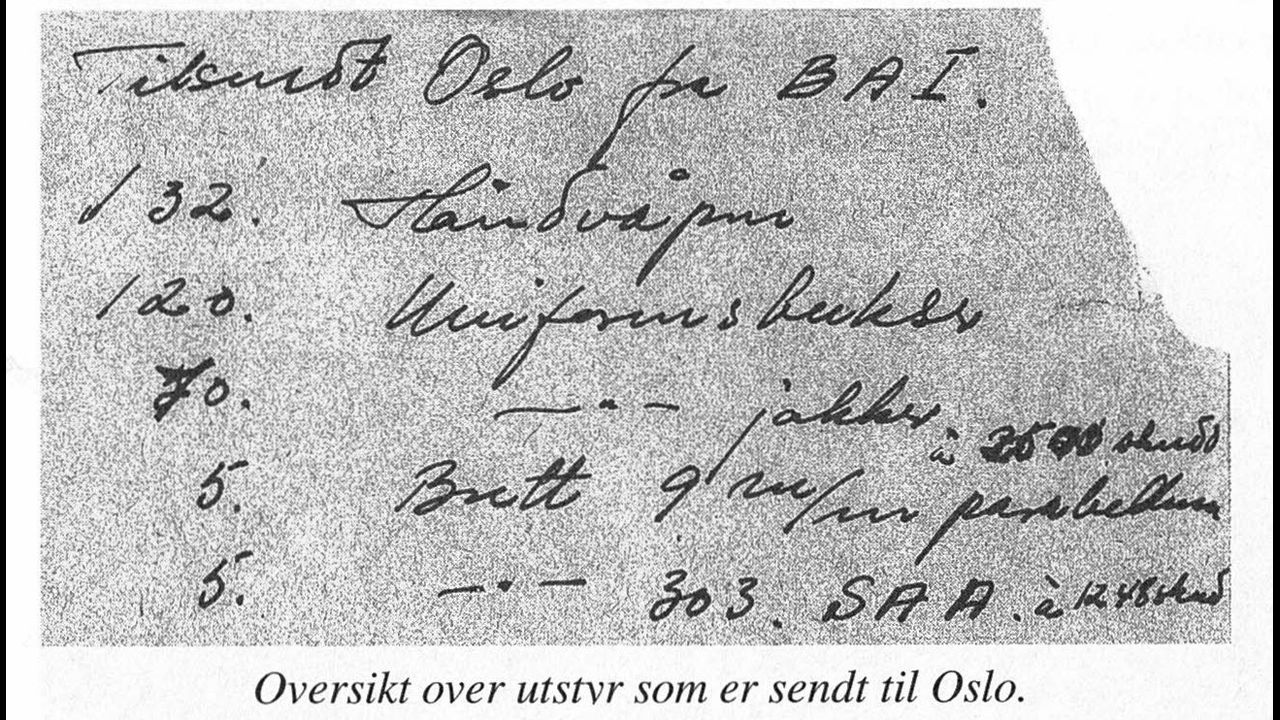 Tilsendt Oslo fra BAI.
132. Håndvåpen
120. Uniformsbukser
70. —"— jakker
5. Brett 9 m/m parabellum à skudd
5. —"— 303. SAA. à 1248 skud
Oversikt over utstyr som er sendt til Oslo.